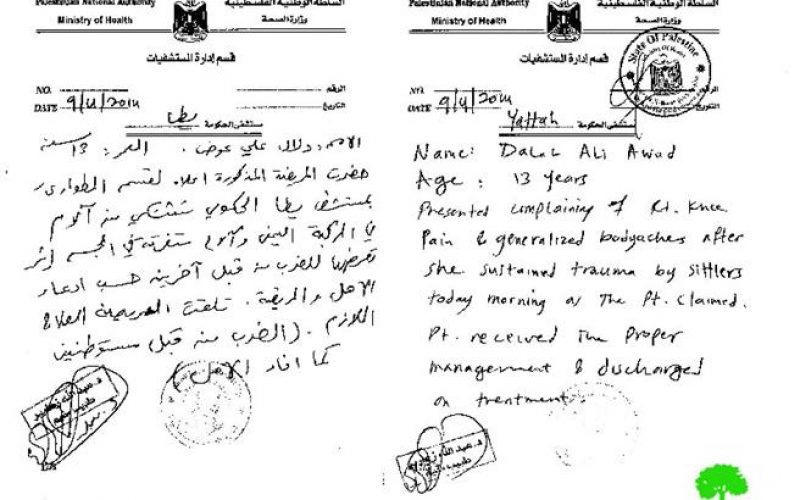 Palestinian National Authority
Ministry of Health
السلطة الوطنية الفلسطينية
وزارة الصحة
قسم إدارة المستشفيات
NO.
الرقم
DATE 9/4/2014
التاريخ
مستشفى الحكومة يطا
الاسم: دلال علي عوض. العمر: 13 سنة
حضرت المريضة المذكورة اعلاه لقسم الطوارئ
بمستشفى يطا الحكومي تشتكي من آلام
في الركبة اليمنى وآلام متفرقة في الجسم إثر
تعرضها للضرب من قبل آخرين حسب ادعاء
الاهل والمريضة. تلقت المريضة العلاج
اللازم. (الضرب من قبل مستوطنين
كما افاد الاهل)
د. عبد الله
Palestinian National Authority
Ministry of Health
السلطة الوطنية الفلسطينية
وزارة الصحة
State Of Palestine
قسم إدارة المستشفيات
NO.
الرقم
DATE 9/4/2014
التاريخ
مستشفى الحكومة Yattah
Name: Dalal Ali Awad
Age : 13 years
Presented complaining of Rt. Knee
Pain & generalized bodyaches after
she sustained trauma by sittlers
today morning as The Pt. claimed.
Pt. received The proper
management & discharged
on treatment.
د. عبد الله